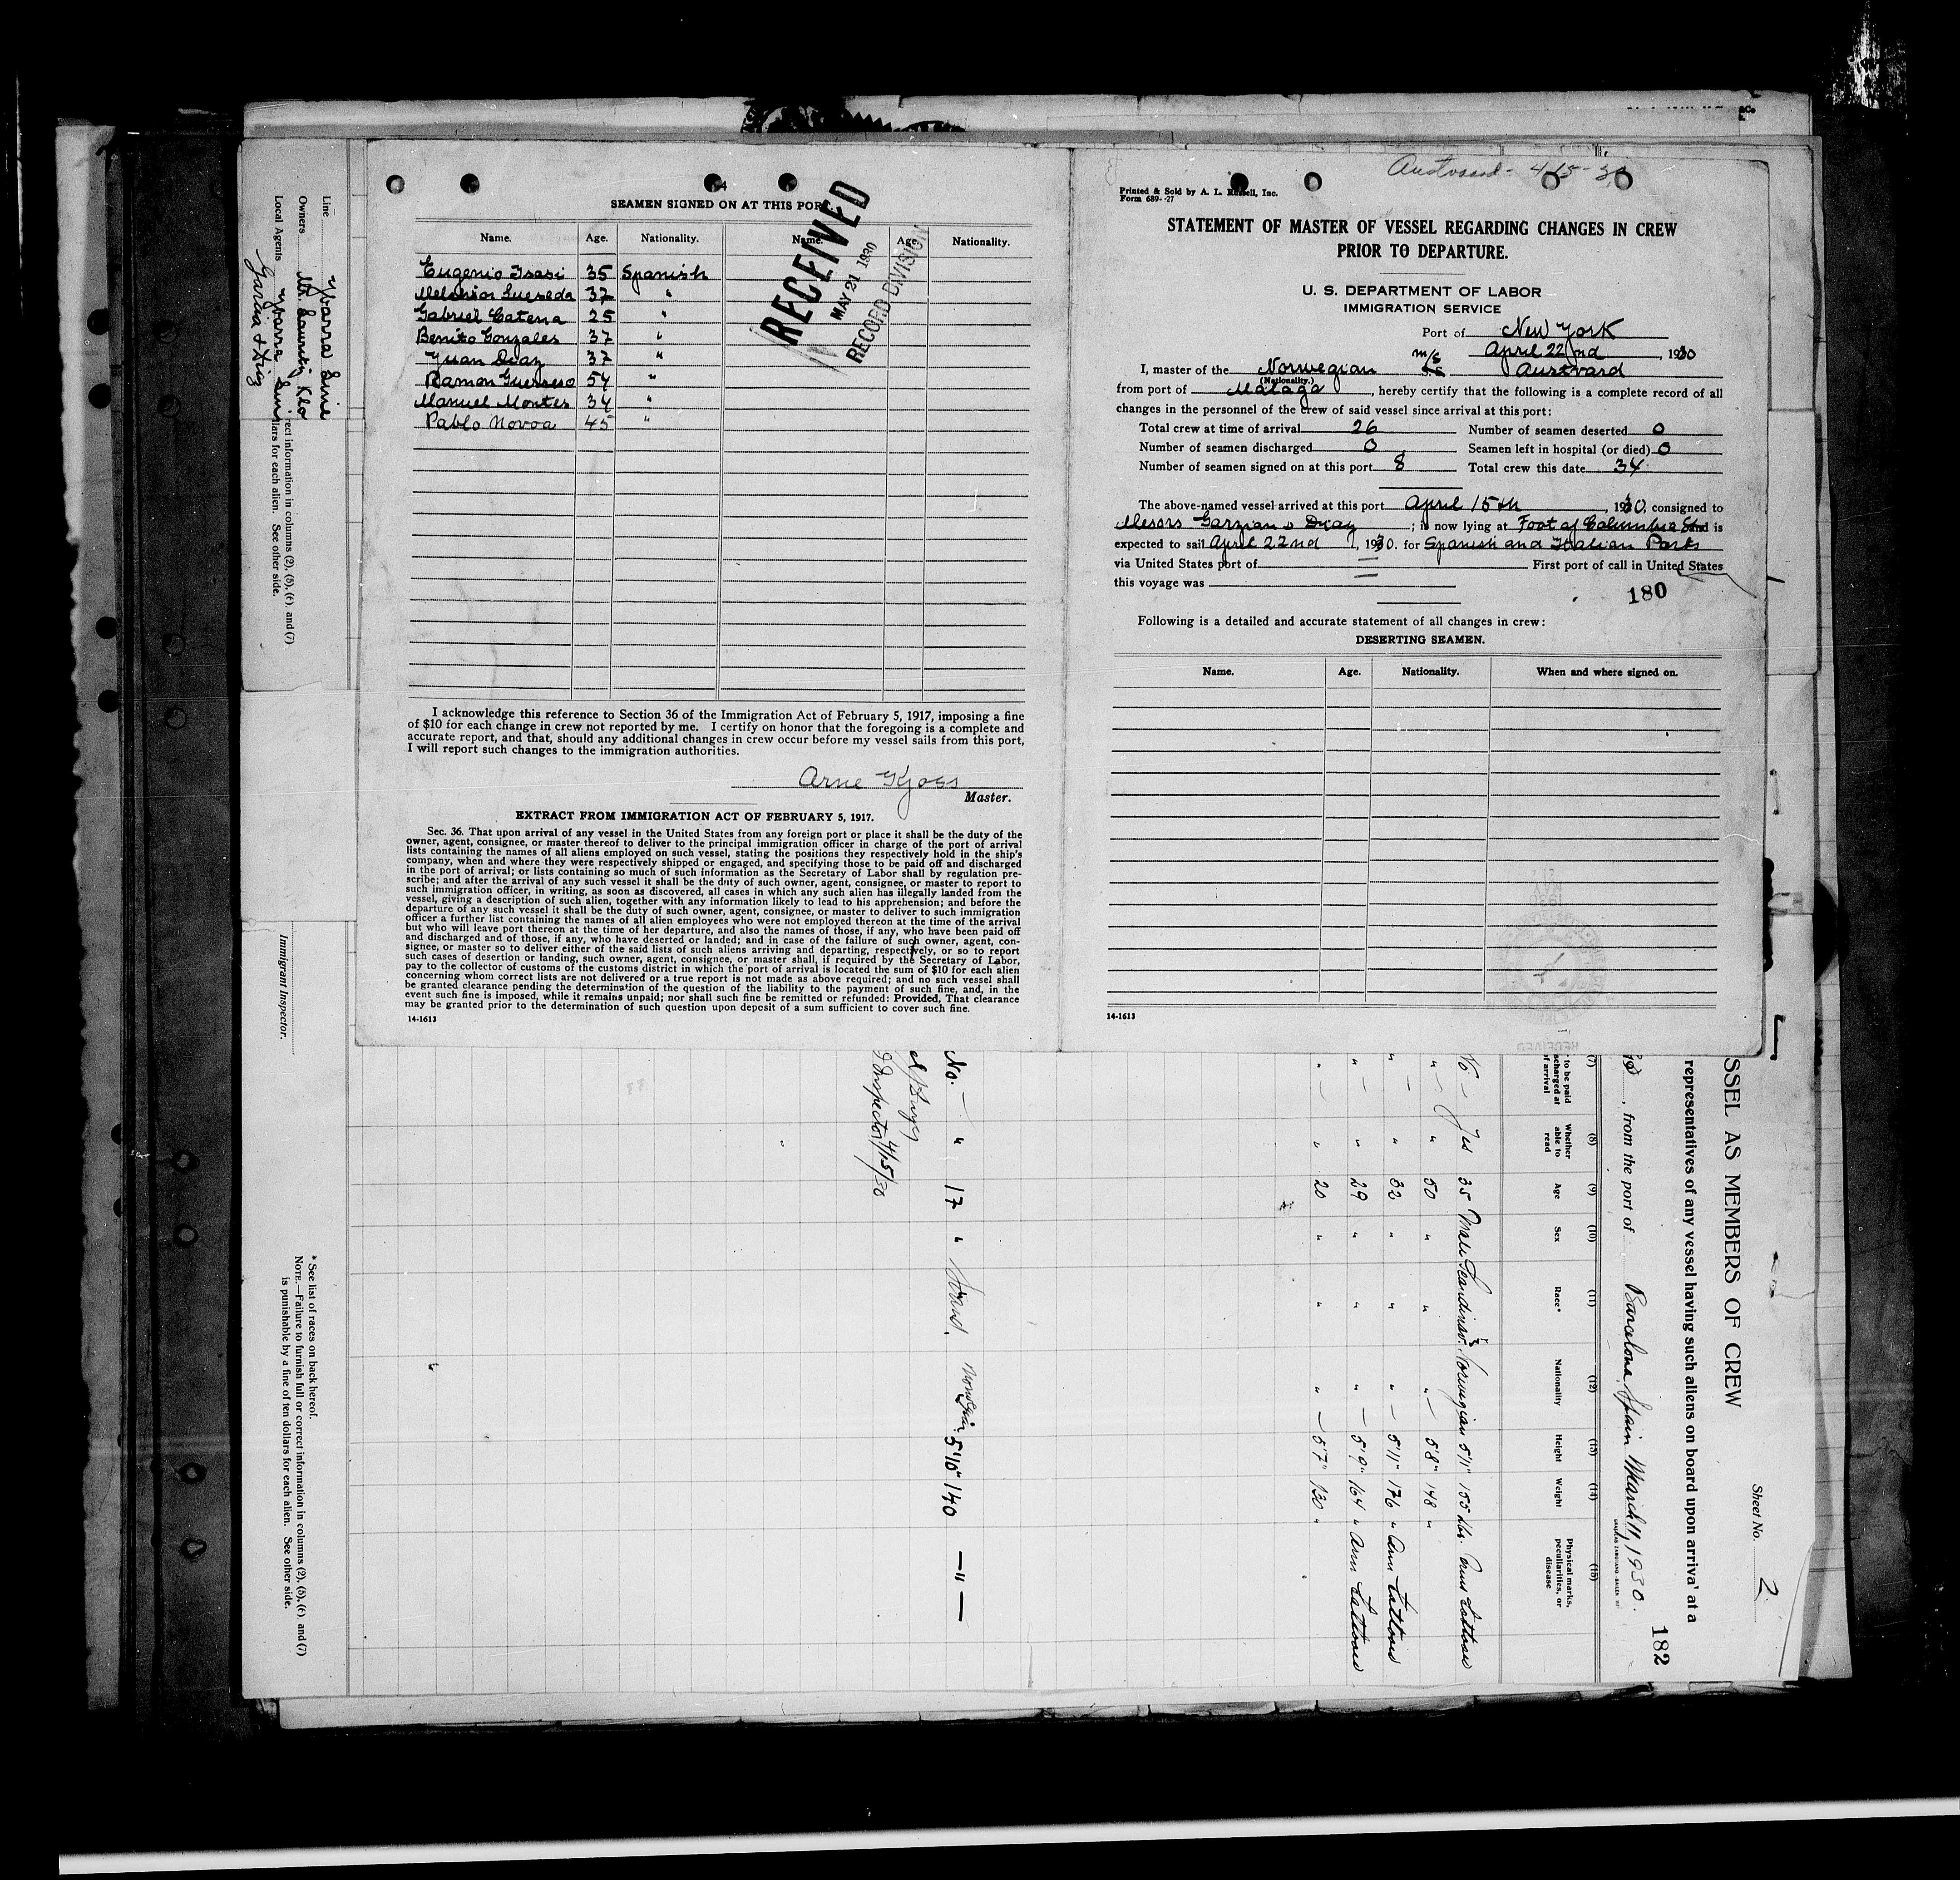 4
SEAMEN SIGNED ON AT THIS PORT.
Name. Age. Nationality. Name. Age. Nationality.
Eugenio Isasi 35 Spanish
Melchior Quesada 37 "
Gabriel Catena 25 "
Benito Gonzales 37 "
Yuan Diaz 37 "
Ramon Guerrero 54 "
Manuel Montes 34 "
Pablo Novoa 45 "
RECEIVED
MAY 21 1930
RECORD DIVISION
I acknowledge this reference to Section 36 of the Immigration Act of February 5, 1917, imposing a fine
of $10 for each change in crew not reported by me. I certify on honor that the foregoing is a complete and
accurate report, and that, should any additional changes in crew occur before my vessel sails from this port,
I will report such changes to the immigration authorities.
Arne
Master.
EXTRACT FROM IMMIGRATION ACT OF FEBRUARY 5, 1917.
Sec. 36. That upon arrival of any vessel in the United States from any foreign port or place it shall be the duty of the
owner, agent, consignee, or master thereof to deliver to the principal immigration officer in charge of the port of arrival
lists containing the names of all aliens employed on such vessel, stating the positions they respectively hold in the ship's
company, when and where they were respectively shipped or engaged, and specifying those to be paid off and discharged
in the port of arrival; or lists containing so much of such information as the Secretary of Labor shall by regulation pre-
scribe; and after the arrival of any such vessel it shall be the duty of such owner, agent, consignee, or master to report to
such immigration officer, in writing, as soon as discovered, all cases in which any such alien has illegally landed from the
vessel, giving a description of such alien, together with any information likely to lead to his apprehension; and before the
departure of any such vessel it shall be the duty of such owner, agent, consignee, or master to deliver to such immigration
officer a further list containing the names of all alien employees who were not employed thereon at the time of the arrival
but who will leave port thereon at the time of her departure, and also the names of those, if any, who have been paid off
and discharged and of those, if any, who have deserted or landed; and in case of the failure of such owner, agent, con-
signee, or master so to deliver either of the said lists of such aliens arriving and departing, respectively, or so to report
such cases of desertion or landing, such owner, agent, consignee, or master shall, if required by the Secretary of Labor,
pay to the collector of customs of the customs district in which the port of arrival is located the sum of $10 for each alien
concerning whom correct lists are not delivered or a true report is not made as above required; and no such vessel shall
be granted clearance pending the determination of the question of the liability to the payment of such fine, and, in the
event such fine is imposed, while it remains unpaid; nor shall such fine be remitted or refunded: Provided, That clearance
may be granted prior to the determination of such question upon deposit of a sum sufficient to cover such fine.
14-1613
Austvard - 4-15-30
Printed & Sold by A. L. Russell, Inc.
Form 689--27
STATEMENT OF MASTER OF VESSEL REGARDING CHANGES IN CREW
PRIOR TO DEPARTURE.
U. S. DEPARTMENT OF LABOR
IMMIGRATION SERVICE
Port of New York
April 22nd, 1930
I, master of the Norwegian m/s Austvard
(Nationality.)
from port of Malaga, hereby certify that the following is a complete record of all
changes in the personnel of the crew of said vessel since arrival at this port:
Total crew at time of arrival 26 Number of seamen deserted 0
Number of seamen discharged 0 Seamen left in hospital (or died) 0
Number of seamen signed on at this port 8 Total crew this date 34
The above-named vessel arrived at this port April 15th, 1930, consigned to
Messrs Garzian & Diaz; is now lying at Foot of Columbia St. and is
expected to sail April 22nd, 1930. for Spanish and Italian Ports
via United States port of First port of call in United States
this voyage was
180
Following is a detailed and accurate statement of all changes in crew:
DESERTING SEAMEN.
Name. Age. Nationality. When and where signed on.
14-1613
Line Ybarra Line
Owners Mr. Lauritz Klo
Local Agents Ybarra Lin
Garcia & Diaz
rect information in columns (2), (5), (6), and (7)
llars for each alien. See other side.
Immigrant Inspector.
* See list of races on back hereof.
NOTE.—Failure to furnish full or correct information in columns (2), (5), (6), and (7)
is punishable by a fine of ten dollars for each alien. See other side.
Sheet No. 2
SSEL AS MEMBERS OF CREW
representatives of any vessel having such aliens on board upon arrival at a
182
, from the port of Barcelona, Spain March 11, 1930.
(7) (8) (9) (10) (11) (12) (13) (14) (15)
to be paid
scharged at
of arrival
Whether
able to
read
Age Sex Race* Nationality Height Weight
Physical marks,
peculiarities, or
disease
No — Yes 35 Male Scandinav. Norwegian 5'11" 155 lbs. Arms tattooed
" — " 50 " " " — 5'8" 148 "
" — " 32 " " " — 5'11" 176 " Arm tattooed
" — " 29 " " " — 5'9" 164 " Arm tattooed
" — " 20 " " " — 5'7" 130 "
No. — " 17 " Scand. Norwegian. 5'10" 140 — " —
Inspector 4/15/30